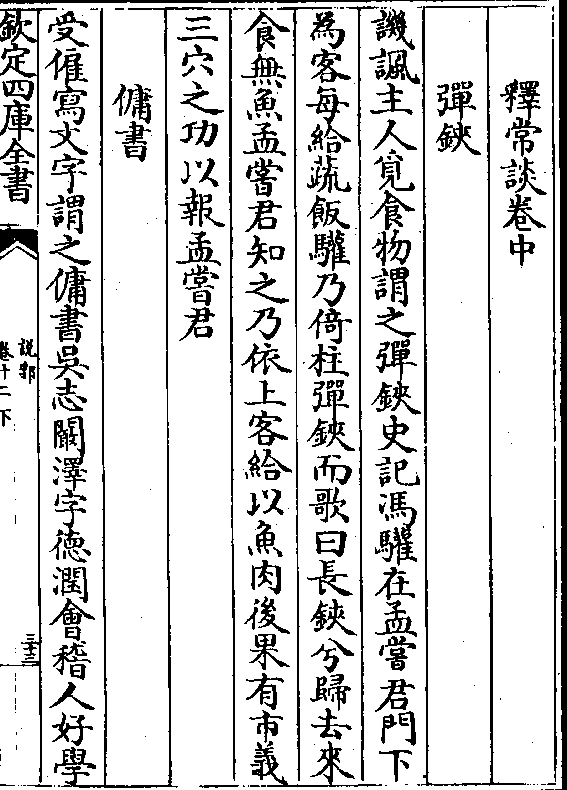 釋常談卷中
彈鋏
譏諷主人覓食物謂之彈鋏史記馮驩在孟嘗君門下
為客每給蔬飯驩乃倚柱彈鋏而歌曰長鋏兮歸去來
食無魚孟嘗君知之乃依上客給以魚肉後果有市義
三穴之功以報孟嘗君
傭書
受雇寫文字謂之傭書吳志闞澤字德潤會稽人好學
欽定四庫全書
說郛
卷十二下
三十三